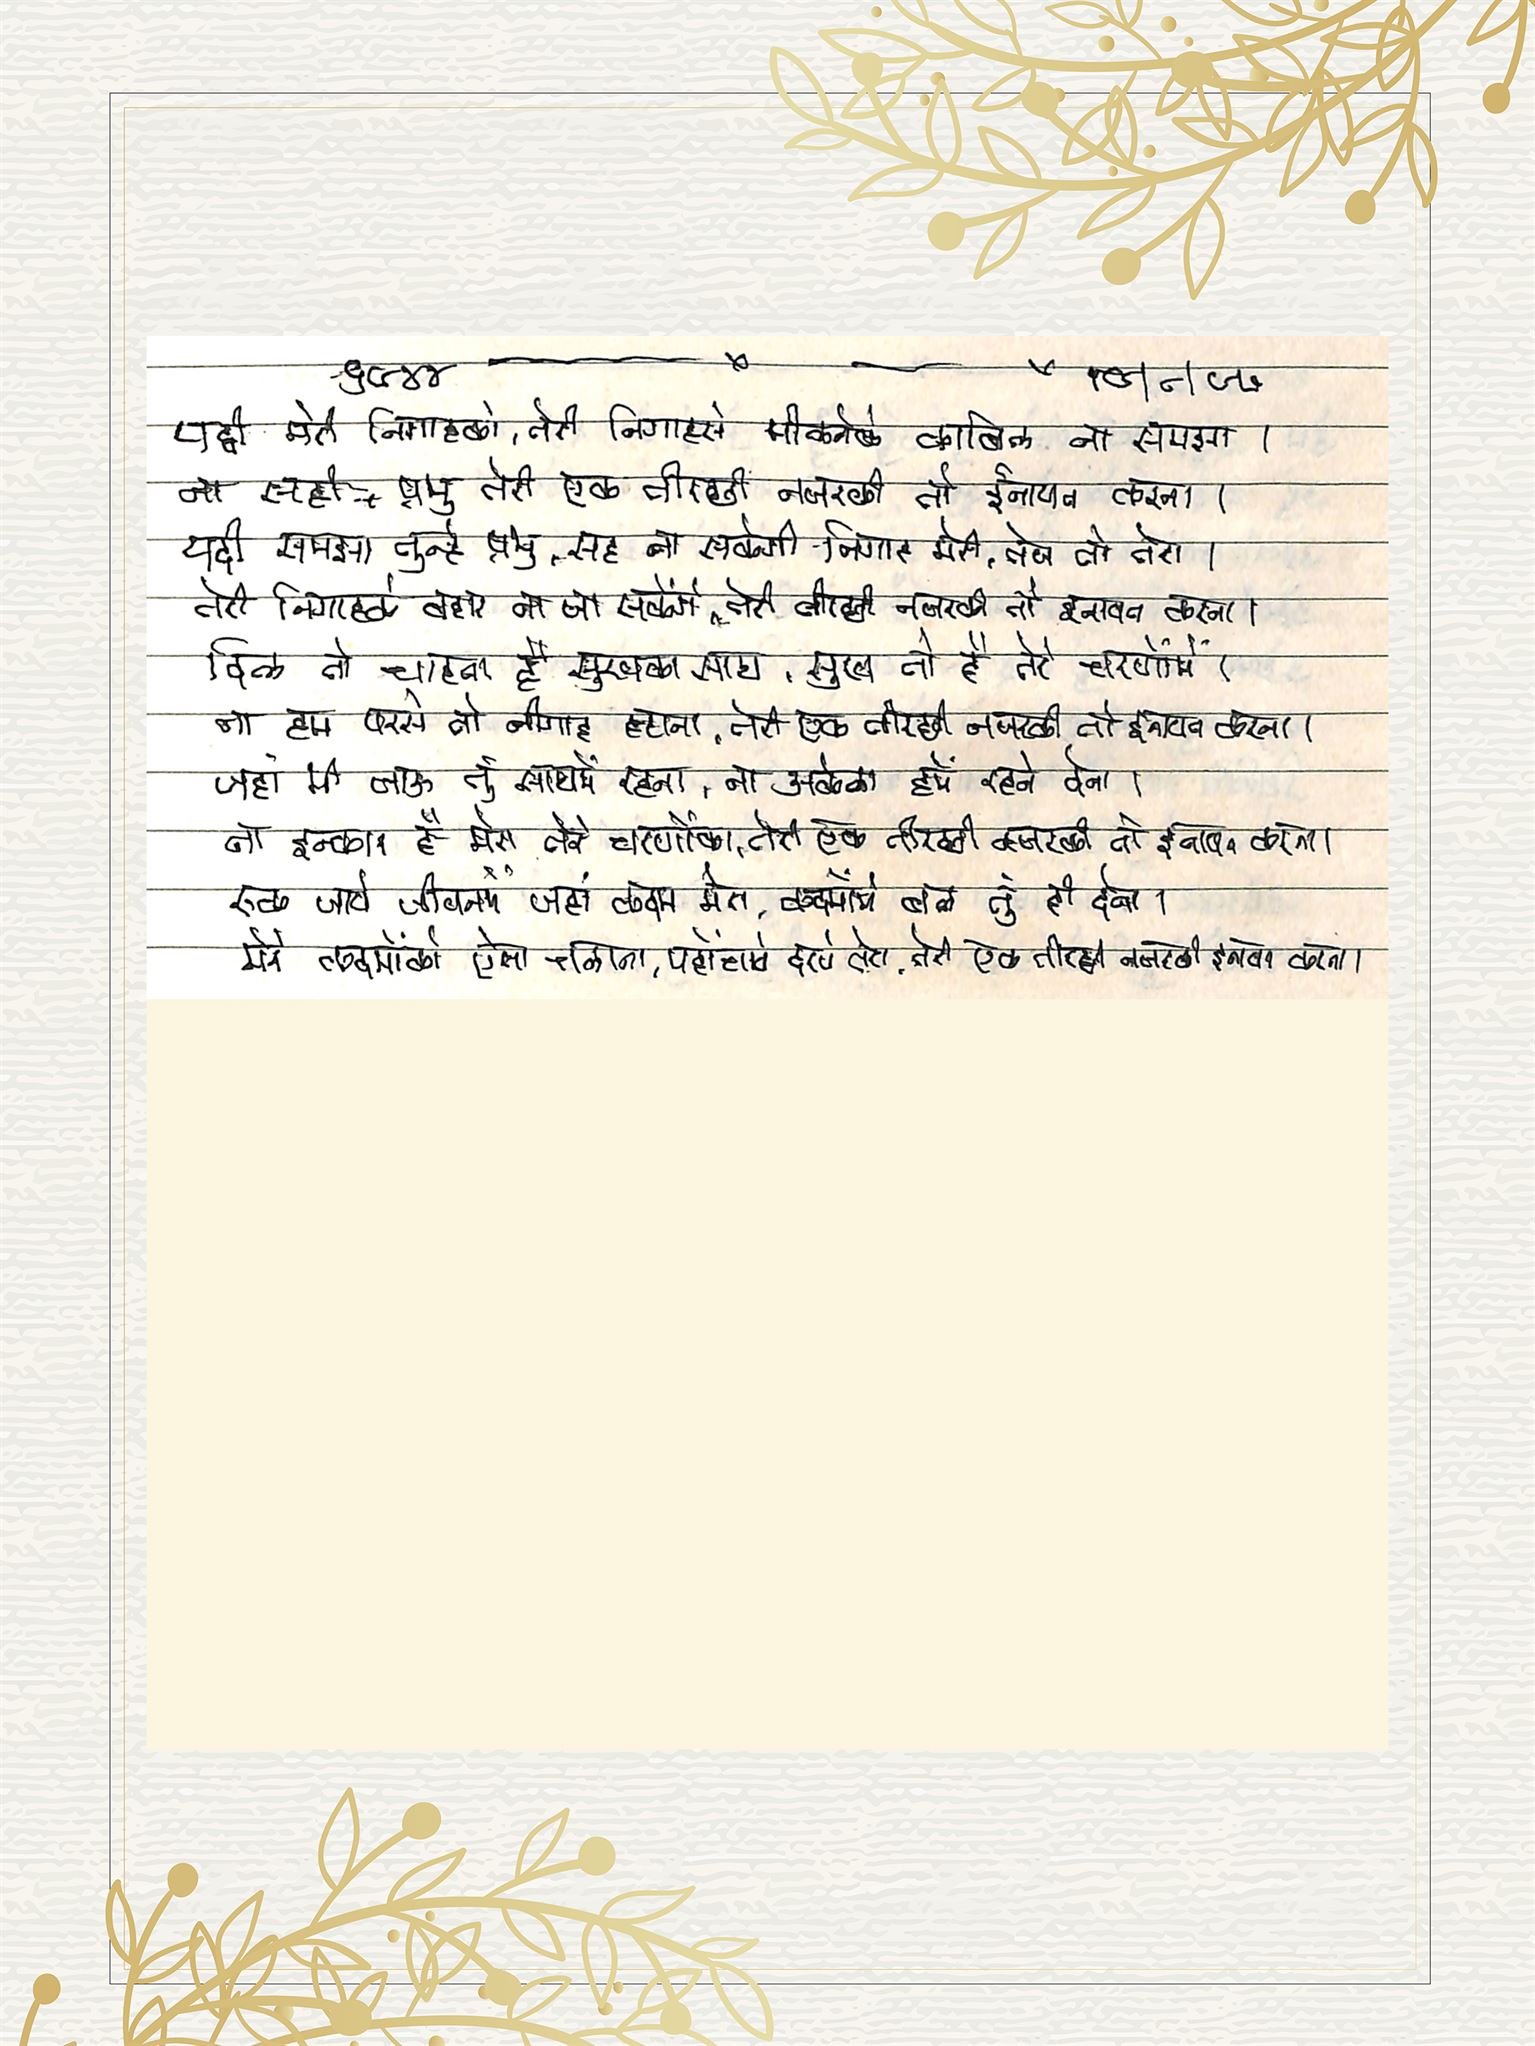 यदी मेरी निगाहको, तेरी निगाहसे मीलनेके काबिल ना समझा ।
ना सही प्रभु तेरी एक तीरछी नजरकी तो ईनायत करना ।
यदी समझा तुन्हे प्रभु, सह ना सकेगी निगाह मेरी, तेज तो तेरा ।
तेरी निगाहके बहार ना जा सकेंगे, तेरी तीरछी नजरकी तो इनायत करना ।
दिल तो चाहता है सुखका साथ, सुख तो है तेरे चरणोंमें ।
ना हम परसे तो नीगाह हटाना, तेरी एक तीरछी नजरकी तो इनायत करना ।
जहां भी जाऊ तुं साथमें रहना, ना अकेला हमें रहने देना ।
ना इन्कार है मेरा तेरे चरणोंका, तेरी एक तीरछी नजरकी तो इनायत करना ।
रुक जाये जीवनमें जहां कदम मेरा, कदमोंमें बल तुं ही देना ।
मेरे कदमोंको ऐसा चलाना, पहोंचाये दरपे तेरा, तेरी एक तीरछी नजरकी इनायत करना ।